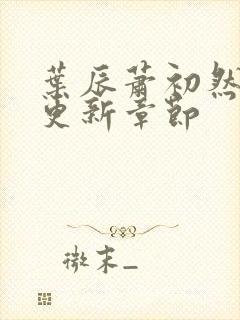 葉辰蕭初然
更新章節
微末_